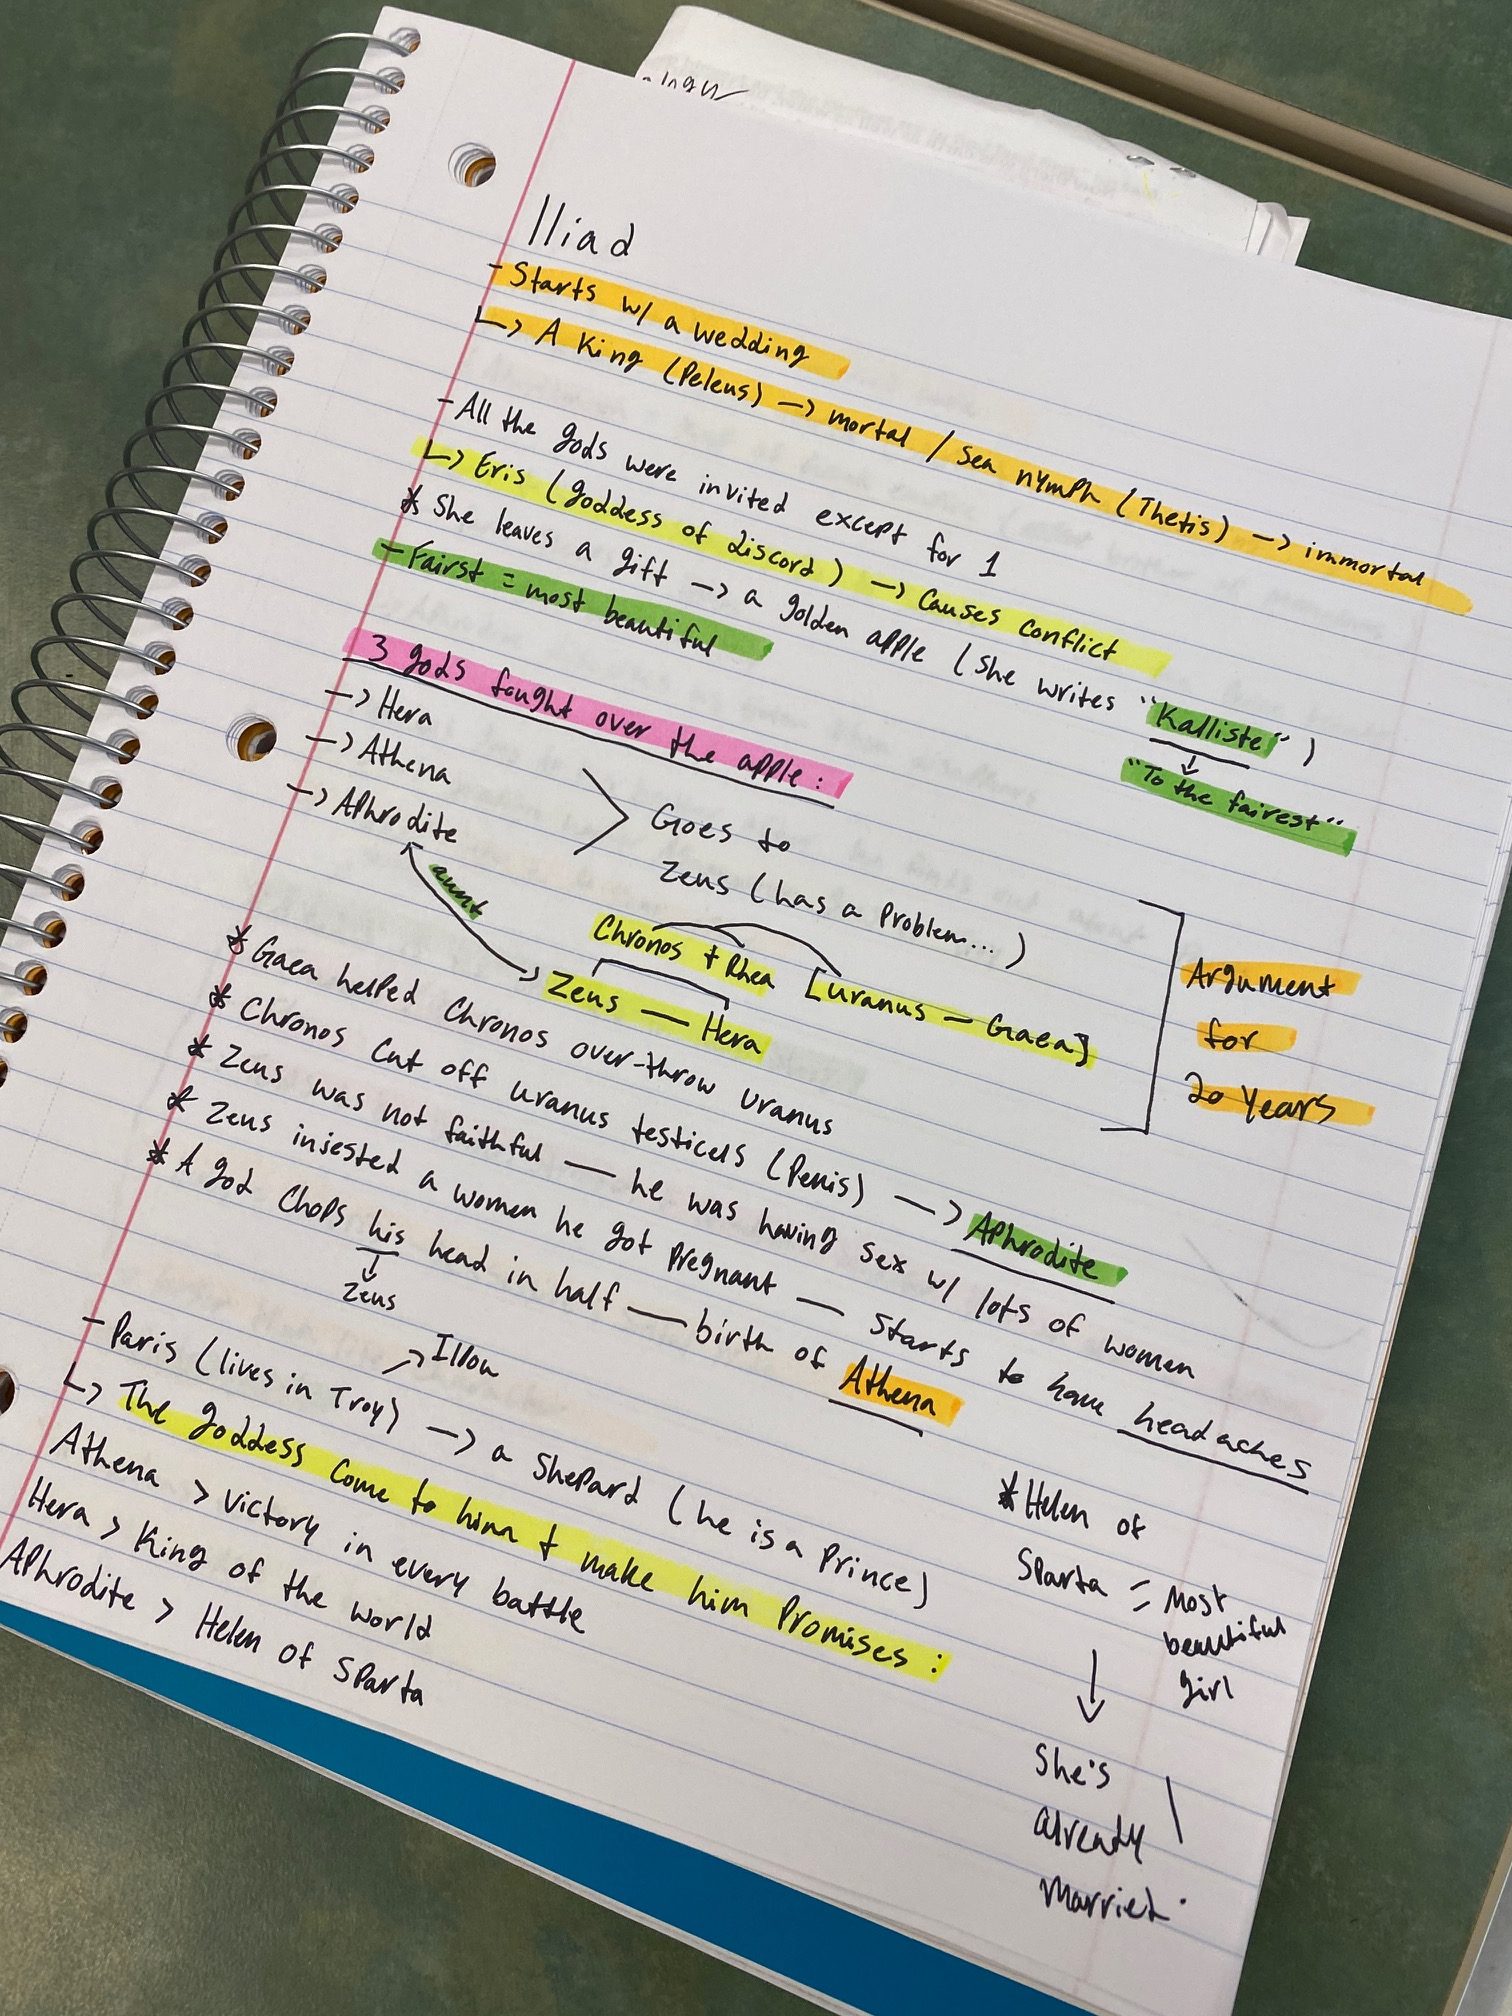 Iliad
- Starts w/ a wedding
↳ A King (Peleus) → mortal / sea nymph (Thetis) → immortal
- All the gods were invited except for 1
↳ Eris (goddess of discord) → causes conflict
* She leaves a gift → a golden apple (she writes "Kalliste")
↓
"To the fairest"
- Fairst = most beautiful
3 gods fought over the apple:
→ Hera
→ Athena
→ Aphrodite
Goes to
Zeus (has a problem...)
aunt
Chronos + Rhea [uranus — Gaea]
Zeus — Hera
Argument
for
20 years
* Gaea helped Chronos over-throw uranus
* Chronos cut off uranus testicels (Penis) → Aphrodite
* Zeus was not faithful — he was having sex w/ lots of women
* Zeus injested a women he got pregnant — starts to have headaches
* A god chops his head in half — birth of Athena
↓
Zeus
- Paris (lives in Troy) → a shepard (he is a prince)
↗ Illow
↳ The goddess come to him + make him promises:
Athena > victory in every battle
Hera > King of the world
Aphrodite > Helen of Sparta
* Helen of
Sparta = most
beautiful
girl
↓
She's
already
married.